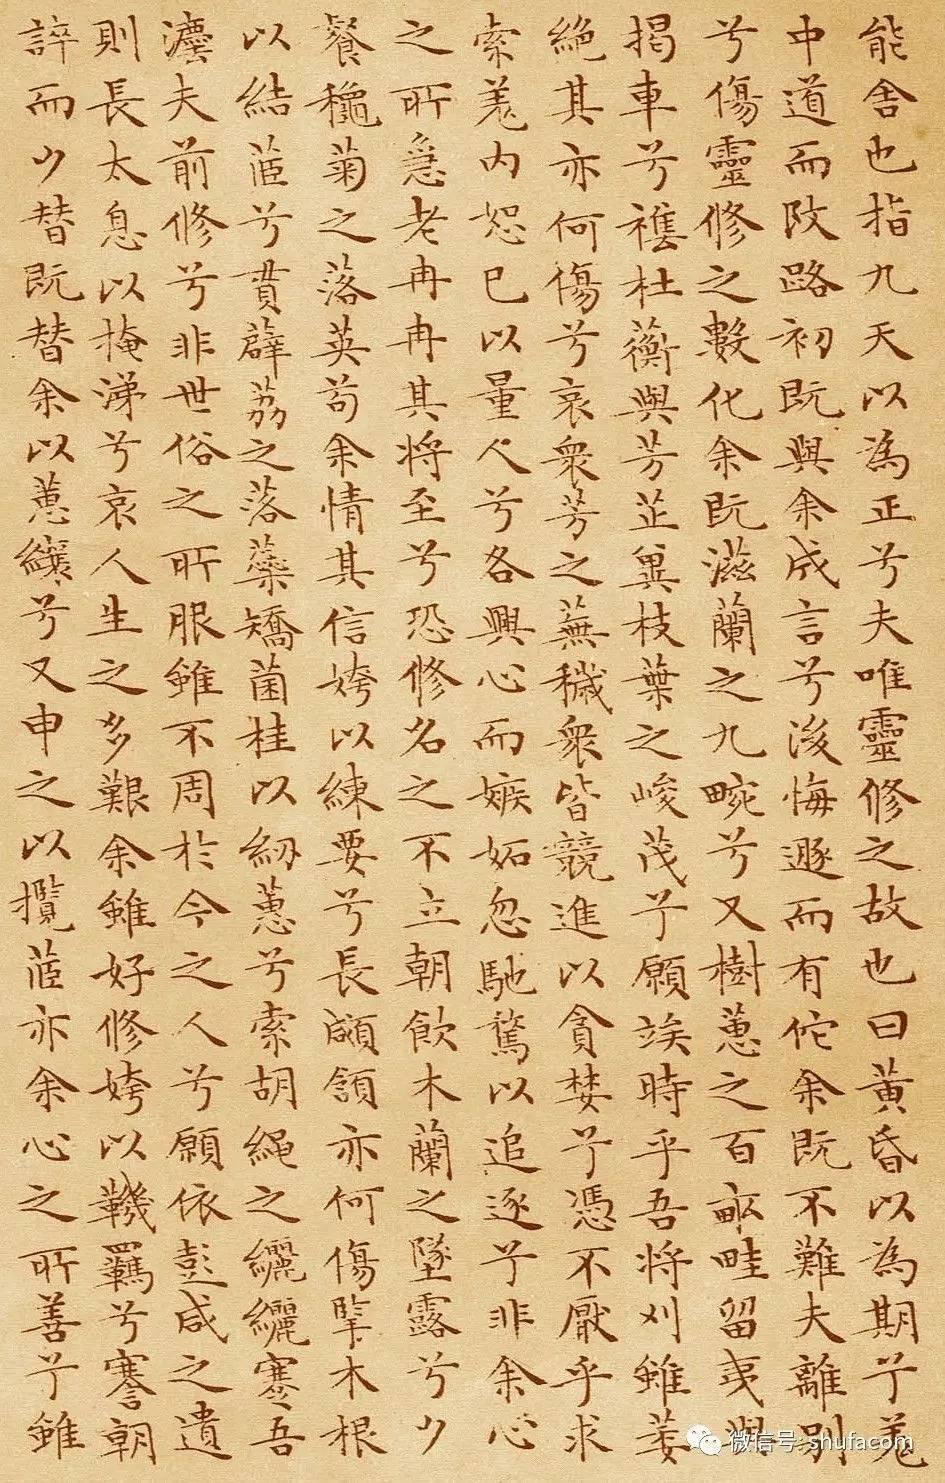 能舍也指九天以為正兮夫唯靈修之故也曰黃昏以為期兮羌
中道而改路初既與余成言兮後悔遯而有佗余既不難夫離別
兮傷靈修之數化余既滋蘭之九畹兮又樹蕙之百畝畦留夷與
揭車兮襍杜蘅與芳芷冀枝葉之峻茂兮願竢時乎吾將刈雖萎
絕其亦何傷兮哀衆芳之蕪穢衆皆競進以貪婪兮憑不厭乎求
索羌內恕己以量人兮各興心而嫉妬忽馳騖以追逐兮非余心
之所急老冉冉其將至兮恐修名之不立朝飲木蘭之墜露兮夕
餐秋菊之落英苟余情其信姱以練要兮長顑頷亦何傷擥木根
以結茝兮貫薜荔之落蘂矯菌桂以紉蕙兮索胡繩之纚纚謇吾
灋夫前修兮非世俗之所服雖不周於今之人兮願依彭咸之遺
則長太息以掩涕兮哀人生之多艱余雖好修姱以鞿羈兮謇朝
誶而夕替既替余以蕙纕兮又申之以攬茝亦余心之所善兮雖
微信号: shufacom